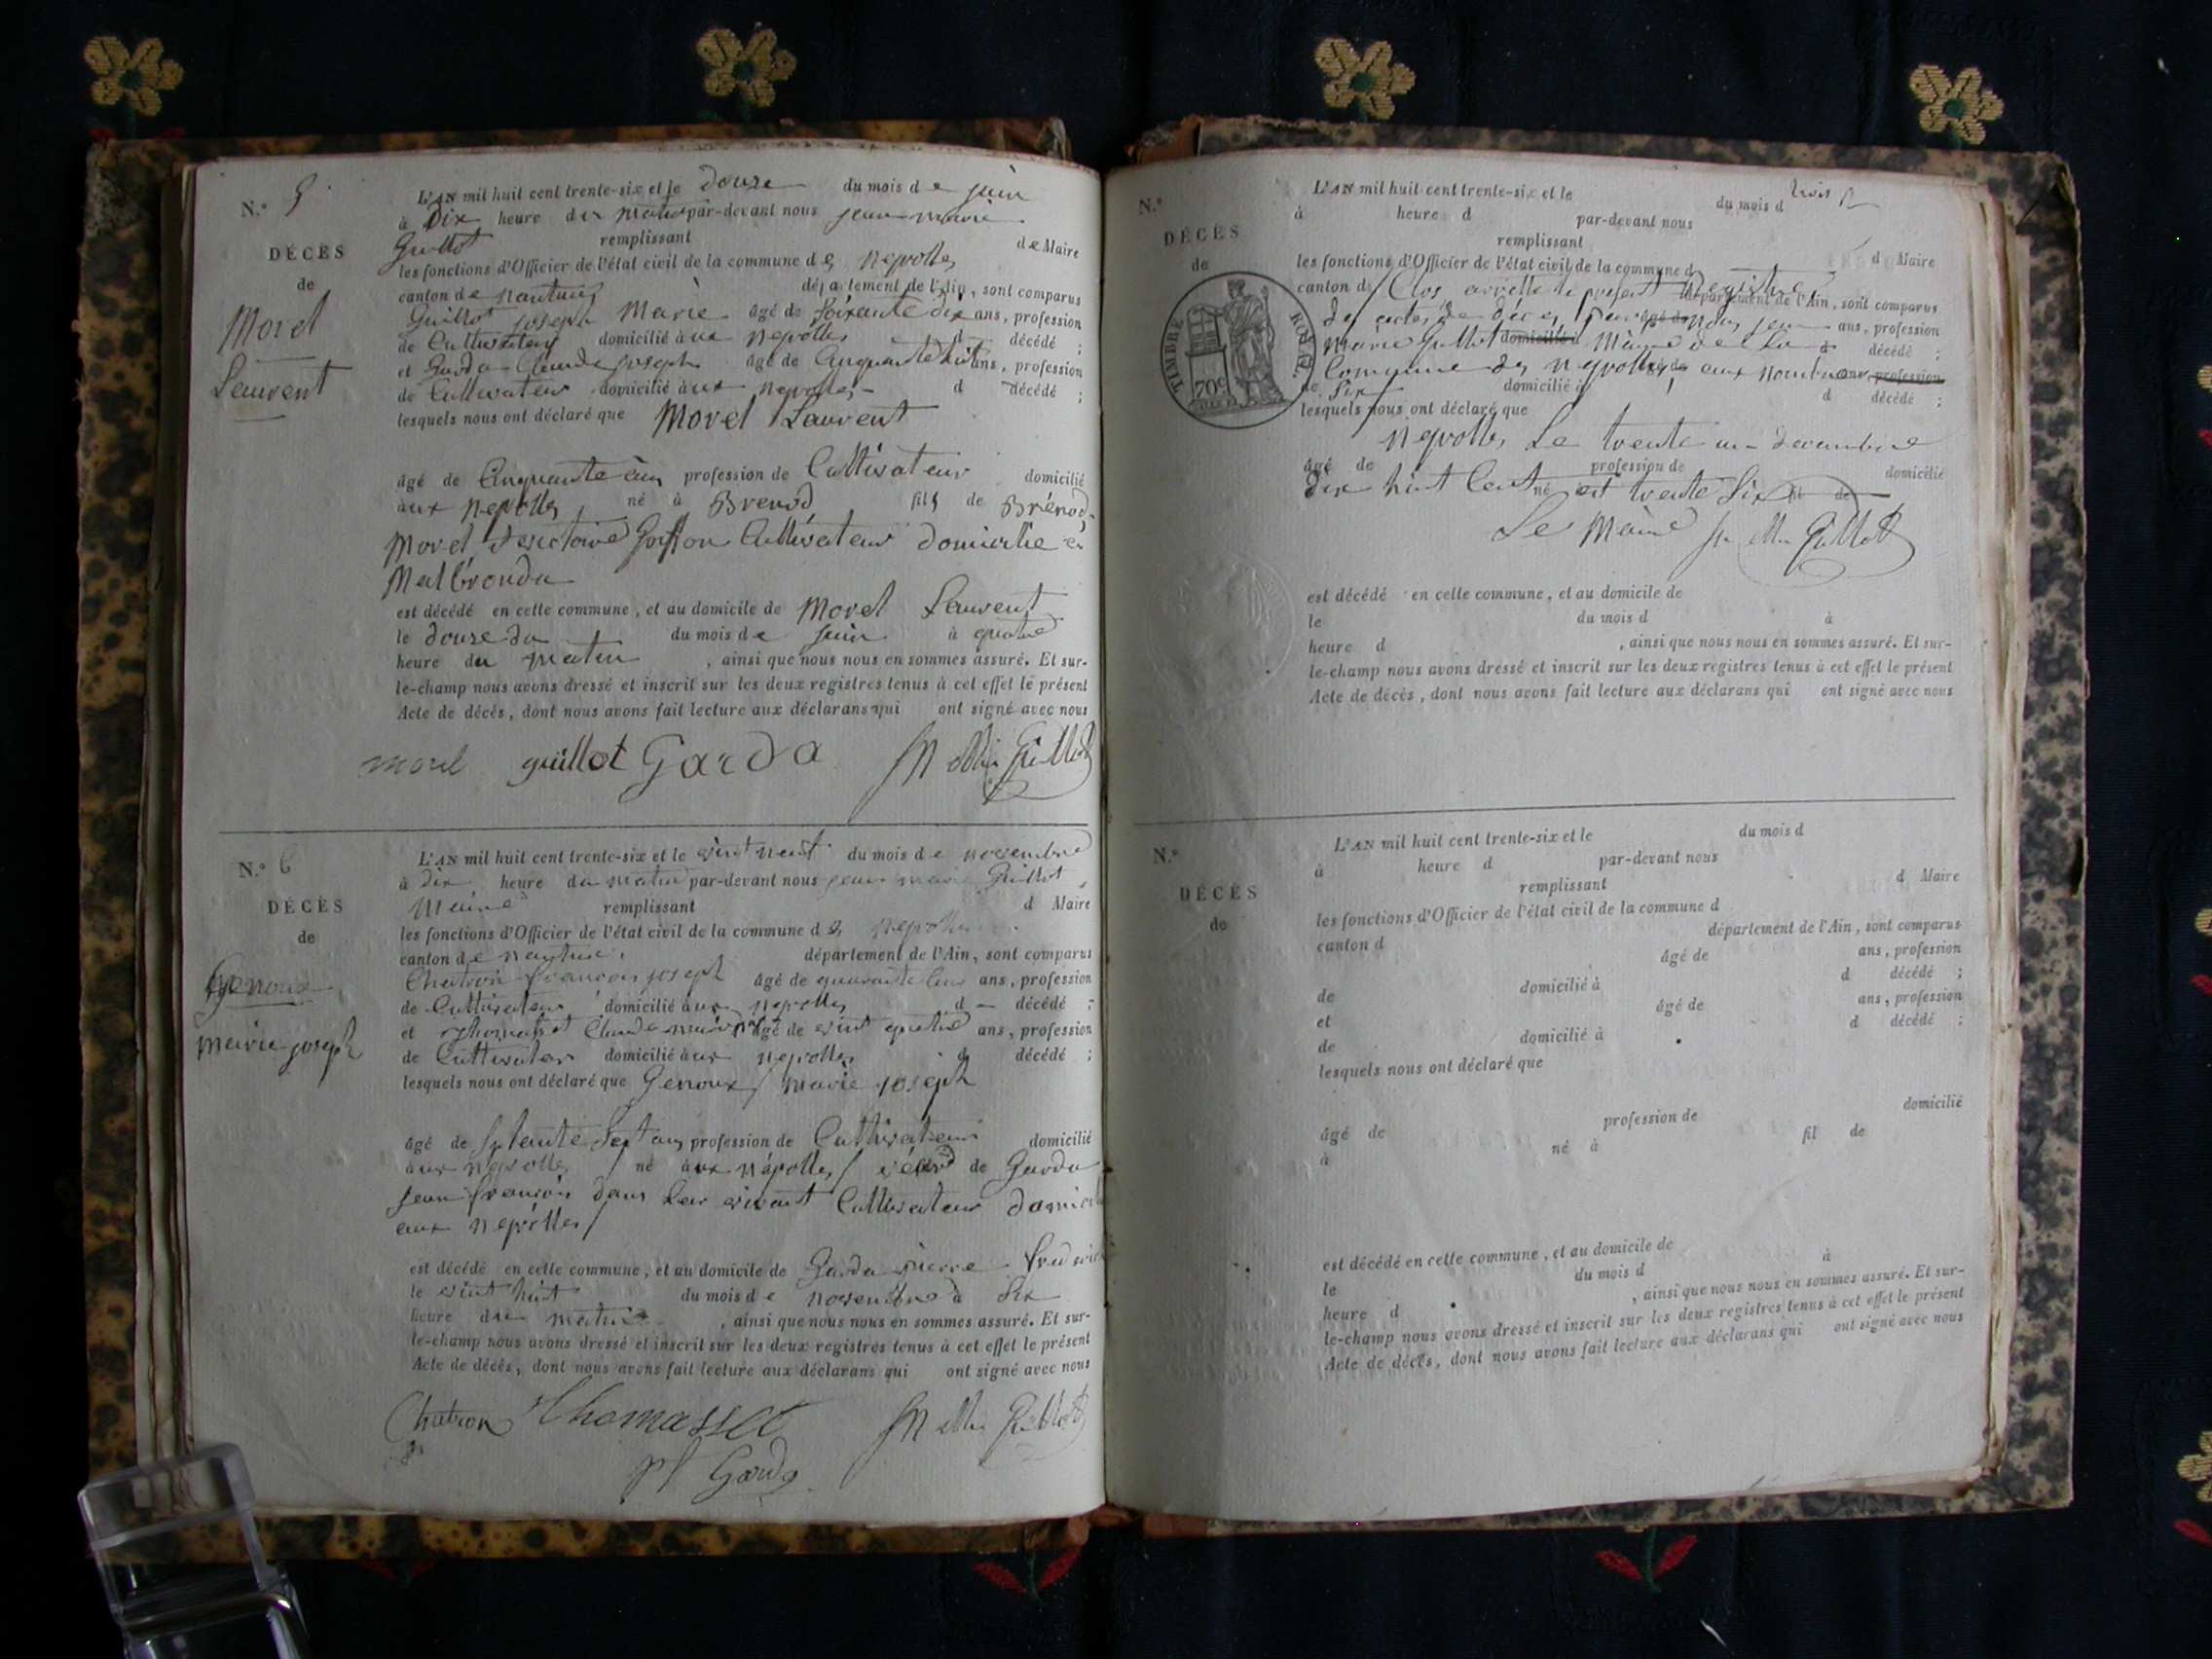 N.° 5
DÉCÈS
de
Morel
Laurent
L'AN mil huit cent trente-six et le douze du mois de juin
à Dix heure du matin par-devant nous jean marie
Guillot remplissant de Maire
les fonctions d'Officier de l'état civil de la commune des neyrolles
canton de nantua département de l'Ain, sont comparus
Guillot joseph Marie âgé de soixante dix ans, profession
de Cultivateur domicilié aux neyrolles d décédé ;
et Garda Claude joseph âgé de Cinquante huit ans, profession
de Cultivateur domicilié aux neyrolles d décédé ;
lesquels nous ont déclaré que Morel Laurent
âgé de Cinquante ans profession de Cultivateur domicilié
aux neyrolles né à Brenod fils de Brénod
Morel Cultivateur domicilié en
Malbronda
est décédé en cette commune, et au domicile de Morel Laurent
le douze du du mois de juin à quatre
heure du matin , ainsi que nous nous en sommes assuré. Et sur-
le-champ nous avons dressé et inscrit sur les deux registres tenus à cet effet le présent
Acte de décès, dont nous avons fait lecture aux déclarans qui ont signé avec nous
morel guillot Garda Guillot
N.° 6
DÉCÈS
de
Genoux
marie joseph
L'AN mil huit cent trente-six et le vint neuf du mois de novembre
à dix heure du matin par-devant nous jean marie Guillot
Maire remplissant d Maire
les fonctions d'Officier de l'état civil de la commune des neyrolles
canton de nantua département de l'Ain, sont comparus
Chatron francois joseph âgé de quarante cinq ans, profession
de Cultivateur domicilié aux neyrolles d décédé ;
et thomasset Claude marie âgé de vint quatre ans, profession
de Cultivateur domicilié aux neyrolles d décédé ;
lesquels nous ont déclaré que Genoux marie joseph
âgé de septante sept ans profession de Cultivateur domicilié
aux neyrolles né aux neyrolles de Garda
jean francois dans son vivant Cultivateur domicil
aux neyrolles
est décédé en cette commune, et au domicile de Garda pierre
le vint huit du mois de novembre à six
heure du matin , ainsi que nous nous en sommes assuré. Et sur-
le-champ nous avons dressé et inscrit sur les deux registres tenus à cet effet le présent
Acte de décès, dont nous avons fait lecture aux déclarans qui ont signé avec nous
Chatron Thomasset Guillot
Garda
N.°
DÉCÈS
de
TIMBRE ROYAL
70c
L'AN mil huit cent trente-six et le du mois d trois
à heure d par-devant nous
remplissant d Maire
les fonctions d'Officier de l'état civil de la commune d
canton d Clos arrêté le présent Registre département de l'Ain, sont comparus
des actes de décès par nous jean ans, profession
marie Guillot domicilié à Maire de la d décédé ;
Commune des neyrolles âgé de aux nombre ans, profession
de six domicilié à d décédé ;
lesquels nous ont déclaré que
neyrolles Le trente un decembre
âgé de profession de domicilié
dix huit Cent né est trente six fil de
Le Maire Guillot
est décédé en cette commune, et au domicile de
le du mois d à
heure d , ainsi que nous nous en sommes assuré. Et sur-
le-champ nous avons dressé et inscrit sur les deux registres tenus à cet effet le présent
Acte de décès, dont nous avons fait lecture aux déclarans qui ont signé avec nous
N.°
DÉCÈS
de
L'AN mil huit cent trente-six et le du mois d
à heure d par-devant nous
remplissant d Maire
les fonctions d'Officier de l'état civil de la commune d
canton d département de l'Ain, sont comparus
âgé de ans, profession
de domicilié à d décédé ;
et âgé de ans, profession
de domicilié à d décédé ;
lesquels nous ont déclaré que
âgé de profession de domicilié
à né à fil de
est décédé en cette commune, et au domicile de
le du mois d à
heure d , ainsi que nous nous en sommes assuré. Et sur-
le-champ nous avons dressé et inscrit sur les deux registres tenus à cet effet le présent
Acte de décès, dont nous avons fait lecture aux déclarans qui ont signé avec nous